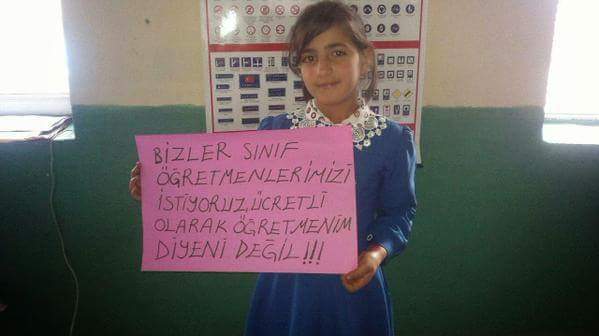 BİZLER SINIF
ÖĞRETMENLERİMİZİ
İSTİYORUZ,ÜCRETLİ
OLARAK ÖĞRETMENİM
DİYENİ DEĞİL!!!